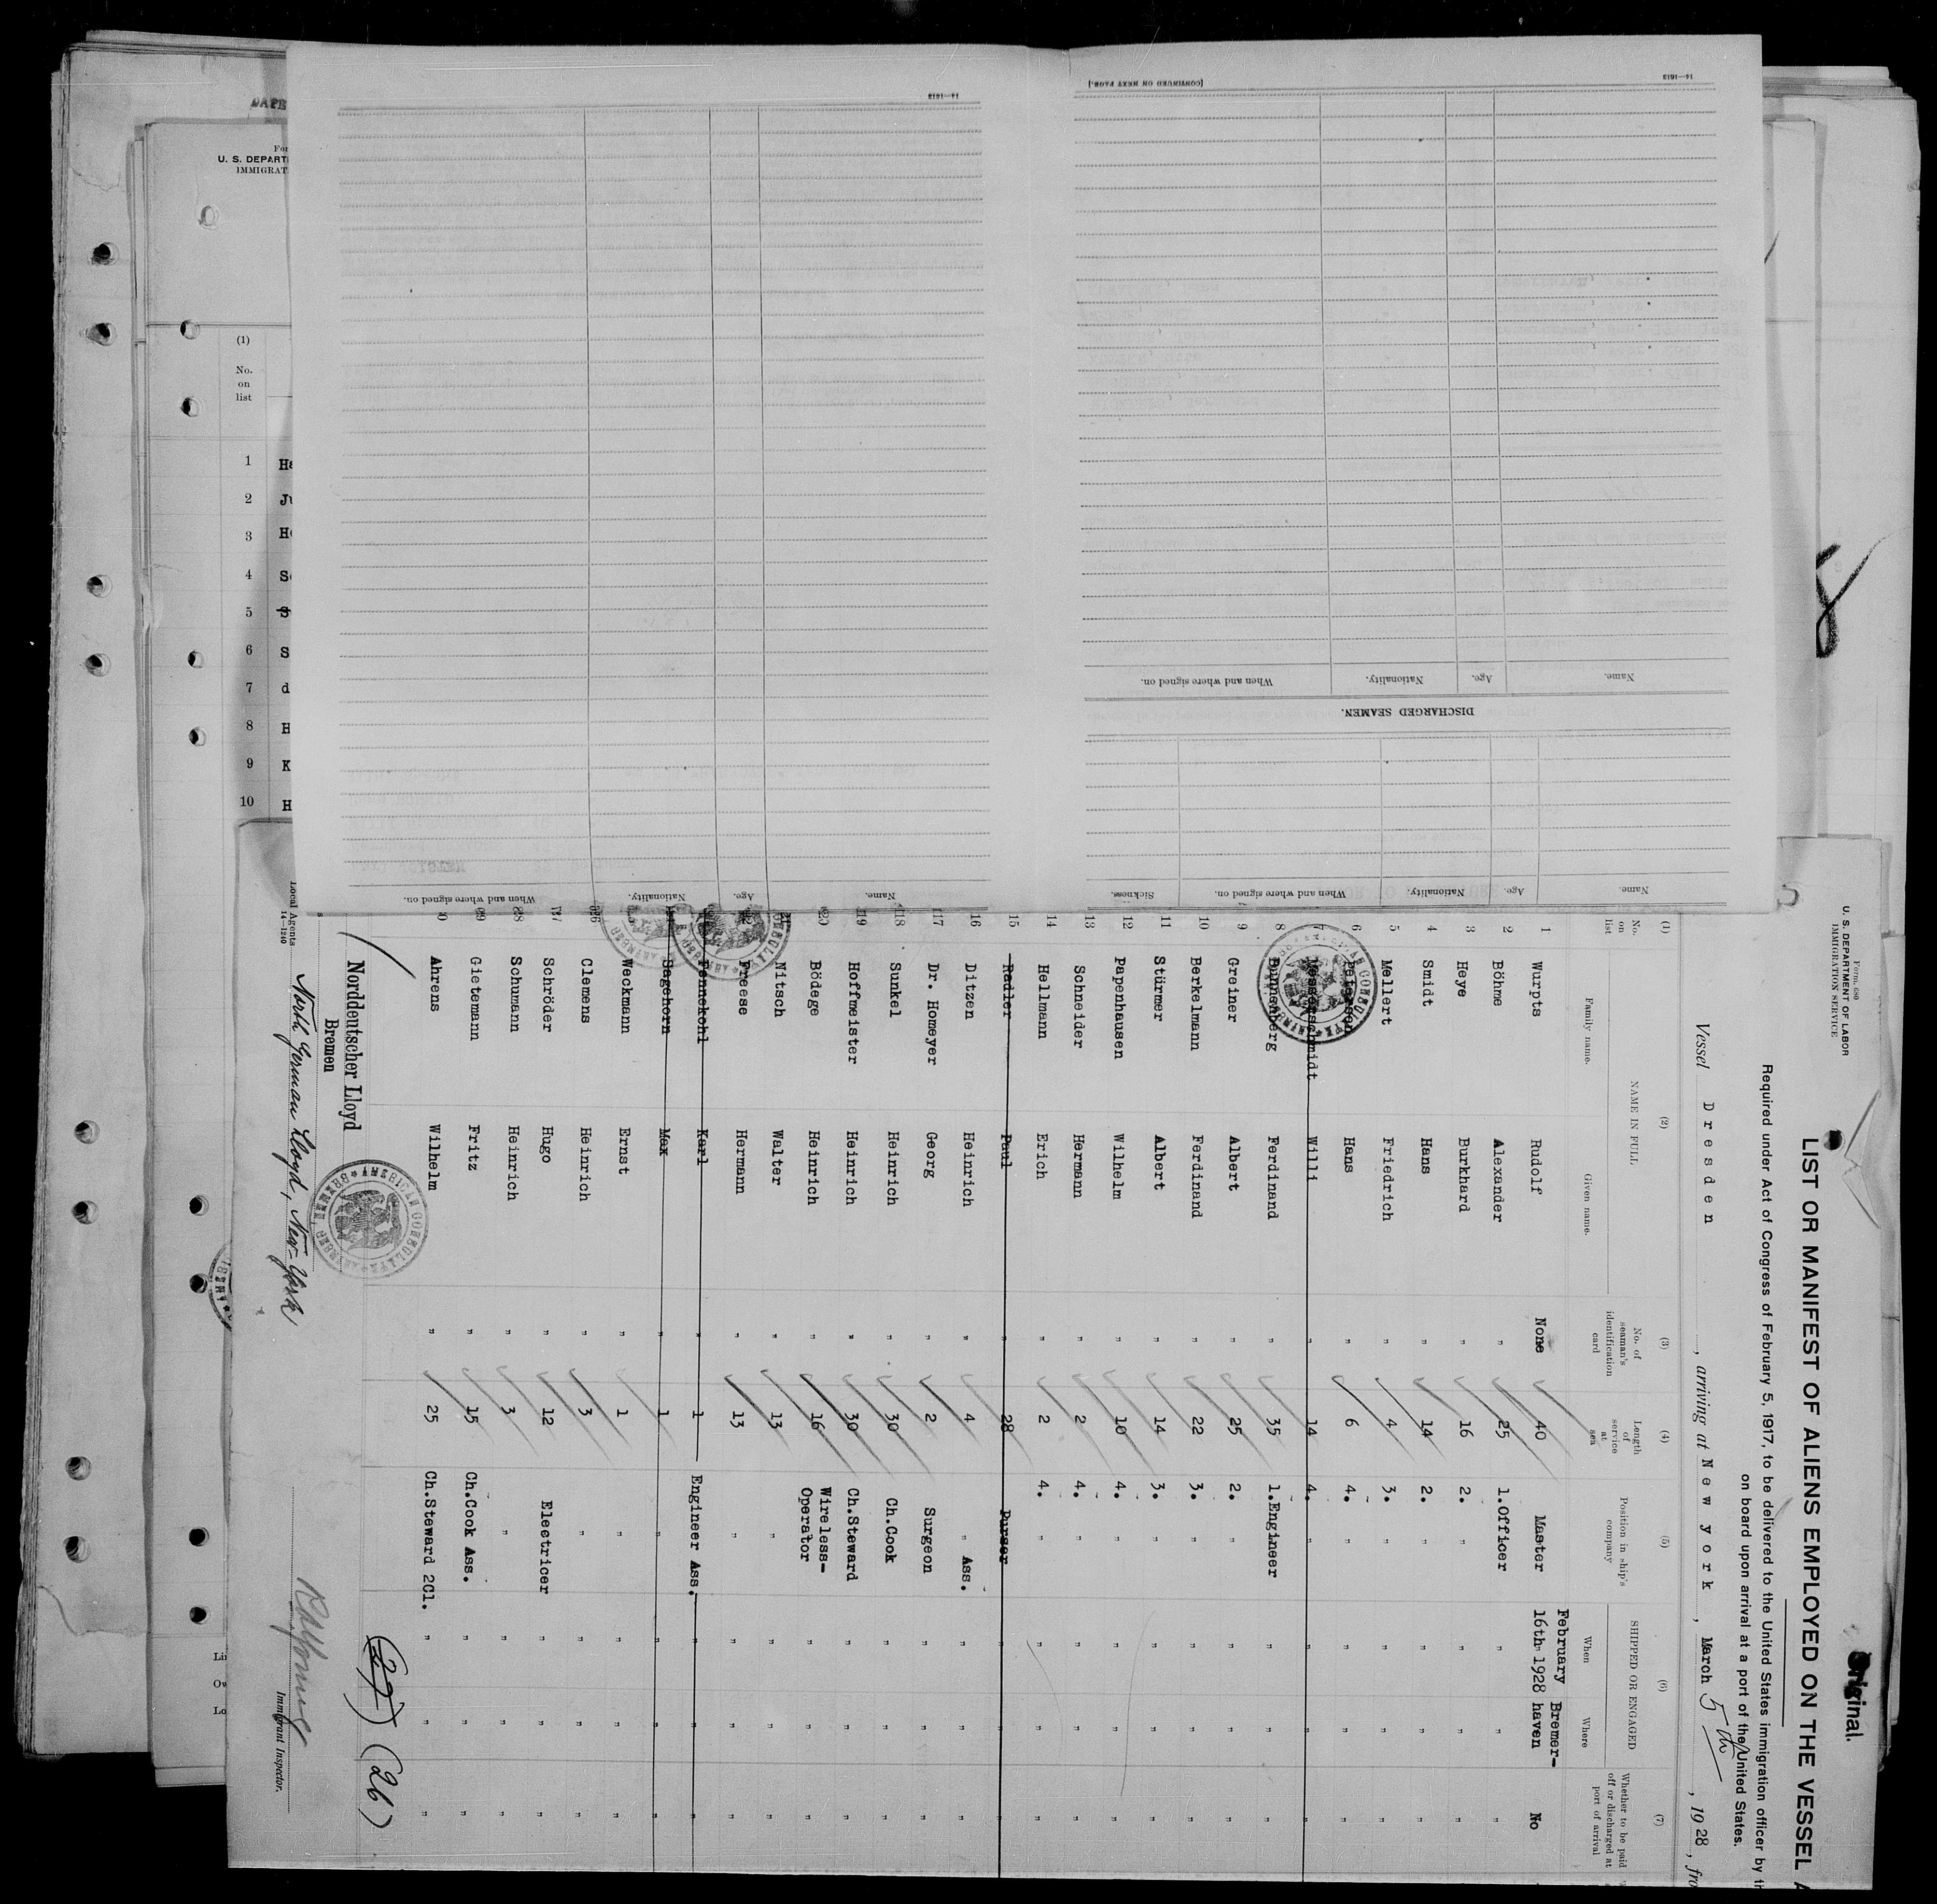 Original.
Form 680
U. S. DEPARTMENT OF LABOR
IMMIGRATION SERVICE
LIST OR MANIFEST OF ALIENS EMPLOYED ON THE VESSEL
Required under Act of Congress of February 5, 1917, to be delivered to the United States immigration officer by
on board upon arrival at a port of the United States.
Vessel Dresden, arriving at New york, March 5th, 1928,
(1) (2) (3) (4) (5) (6) (7)
No. on list NAME IN FULL No. of seaman's identification card Length of service at sea Position in ship's company SHIPPED OR ENGAGED Whether to be paid off or discharged at port of arrival
Family name. Given name. When Where
February Bremer-
1 Wurpts Rudolf None 40 Master 16th 1928 haven No
2 Böhme Alexander " 25 1.Officer " " "
3 Heye Burkhard " 16 2. " " " "
4 Smidt Hans " 14 2. " " " "
5 Mellert Friedrich " 4 3. " " " "
6 Petersen Hans " 6 4. " " " "
7 Messerschmidt Willi " 14 4. " " " "
8 Dannenberg Ferdinand " 35 1.Engineer " " "
9 Greiner Albert " 25 2. " " " "
10 Berkelmann Ferdinand " 22 3. " " " "
11 Stürmer Albert " 14 3. " " " "
12 Papenhausen Wilhelm " 10 4. " " " "
13 Schneider Hermann " 2 4. " " " "
14 Hellmann Erich " 2 4. " " " "
15 Redler Paul " 28 Purser " " "
16 Ditzen Heinrich " 4 " Ass. " " "
17 Dr. Homeyer Georg " 2 Surgeon " " "
18 Sunkel Heinrich " 30 Ch.Cook " " "
19 Hoffmeister Heinrich " 30 Ch.Steward " " "
20 Bödege Heinrich " 16 Wireless-Operator " " "
21 Nitsch Walter " 13 " " " "
Freese Hermann " 13 " " " "
Pennekohl Karl " 1 Engineer Ass. " " "
Sagehorn Max " 1 " " " "
Weckmann Ernst " 1 " " " "
26 Clemens Heinrich " 3 " " " "
27 Schröder Hugo " 12 Electricer " " "
28 Schumann Heinrich " 3 " " " "
29 Gietemann Fritz " 15 Ch.Cook Ass. " " "
Ahrens Wilhelm " 25 Ch.Steward 2Cl. " " "
(27) (26)
Norddeutscher Lloyd
Bremen
North German Lloyd, New-York
Immigrant Inspector.
Local Agents
14-1240
14-1613
[CONTINUED ON NEXT PAGE.]
14-1613
Name. Age. Nationality. When and where signed on.
DISCHARGED SEAMEN.
Name. Age. Nationality. When and where signed on. Sickness.
Name. Age. Nationality. When and where signed on.
U. S. DEPART
IMMIGRAT
(1)
No.
on
list
1
2
3
4
5
6
7
8
9
10